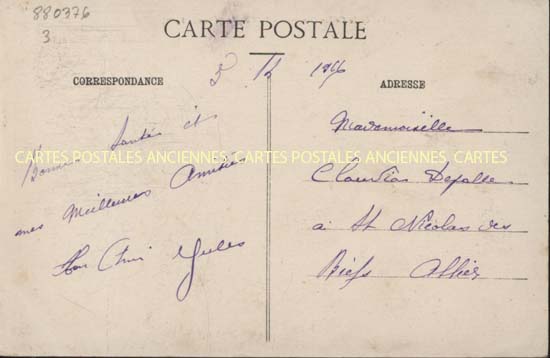 880376
3
CARTE POSTALE
CORRESPONDANCE
ADRESSE
Bonne Santé et
mes Meilleures Amitiés
Ton Ami Jules
Mademoiselle
Claudia
à St Nicolas des
Biefs Allier
CARTES POSTALES ANCIENNES, CARTES POSTALES ANCIENNES, CARTES